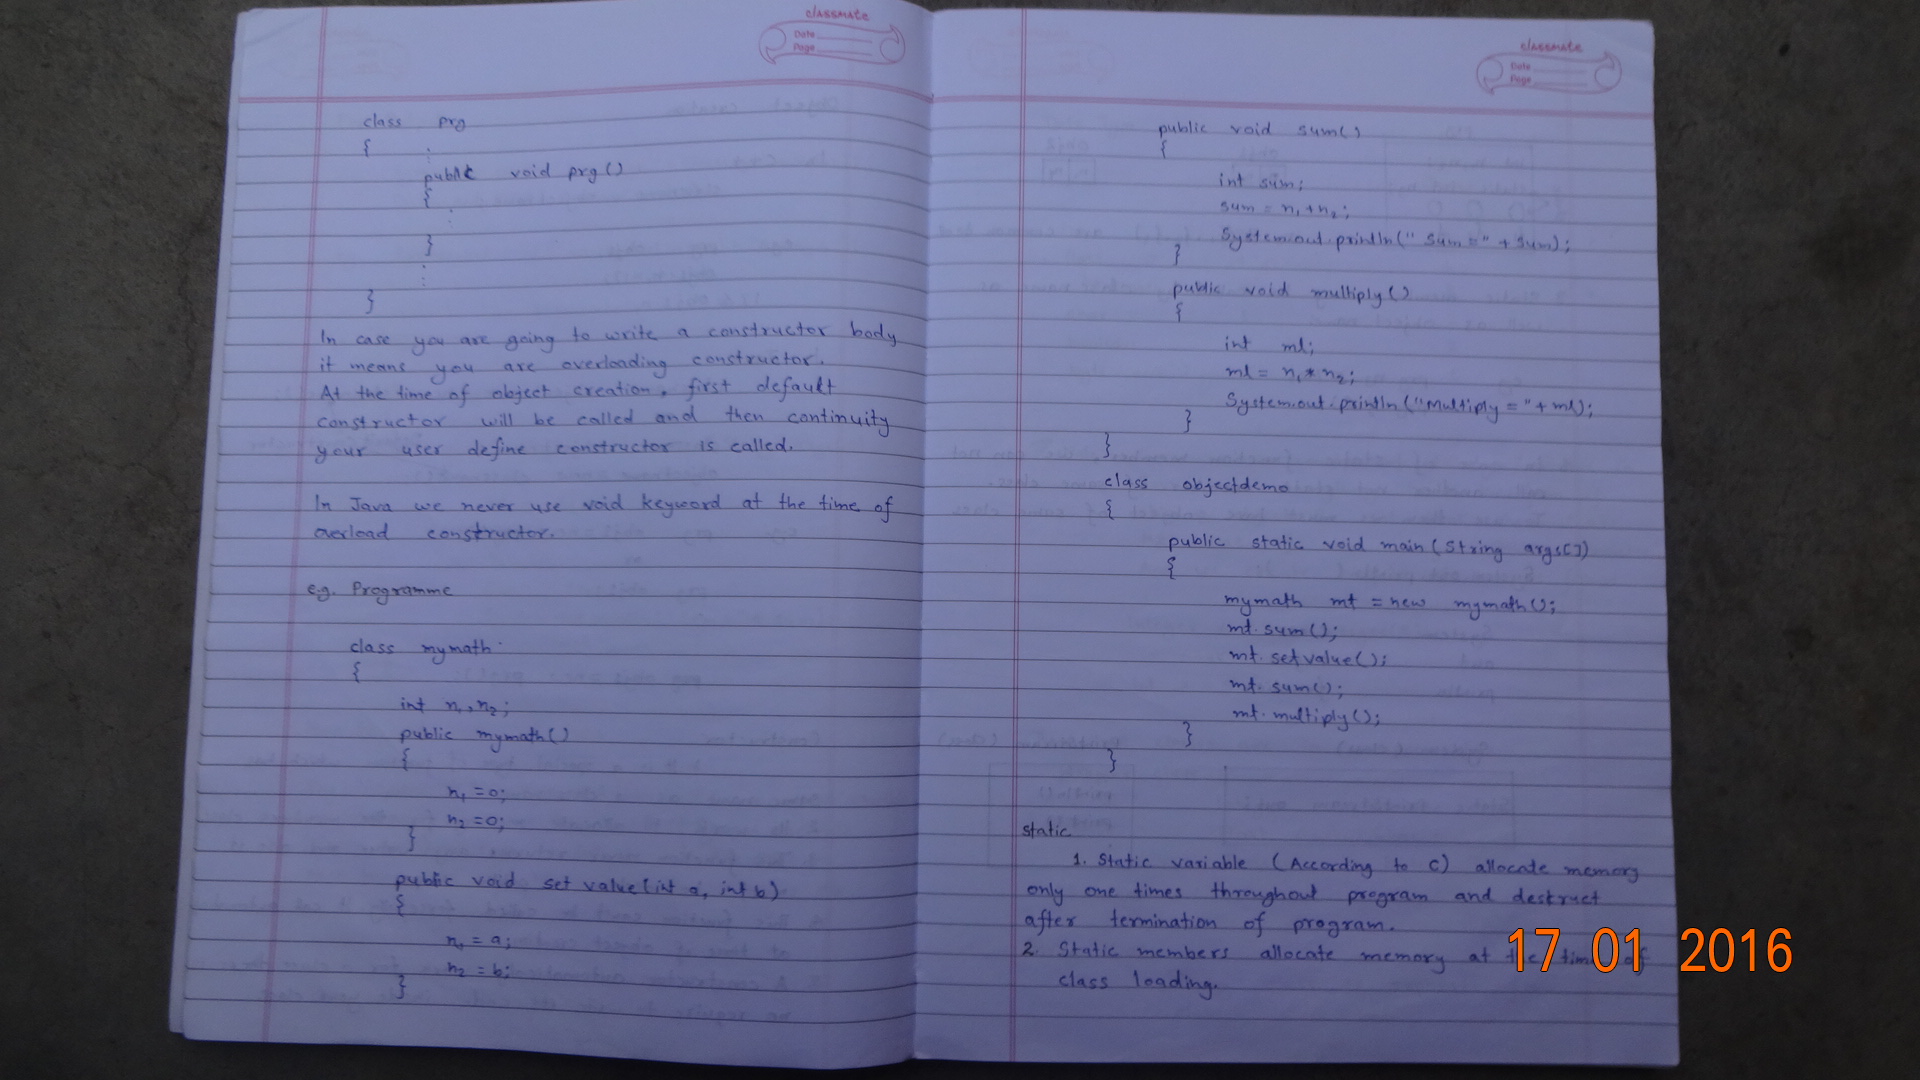 classmate
Date
Page
class prg
{
:
public void prg()
{
:
}
:
}
In case you are going to write a constructor body
it means you are overloading constructor.
At the time of object creation, first default
constructor will be called and then continuity
your user define constructor is called.
In Java we never use void keyword at the time of
overload constructor.
e.g. Programme
class mymath
{
int n1, n2;
public mymath()
{
n1 = 0;
n2 = 0;
}
public void set value(int a, int b)
{
n1 = a;
n2 = b;
}
classmate
Date
Page
public void sum()
{
int sum;
sum = n1 + n2;
System.out.println(" sum =" + sum);
}
public void multiply()
{
int ml;
ml = n1 * n2;
System.out.println("Multiply = " + ml);
}
}
class objectdemo
{
public static void main(String args[])
{
mymath mt = new mymath();
mt. sum();
mt. setvalue();
mt. sum();
mt. multiply();
}
}
static
1. Static variable (According to C) allocate memory
only one times throughout program and destruct
after termination of program.
2. Static members allocate memory at the time of
class loading.
17 01 2016